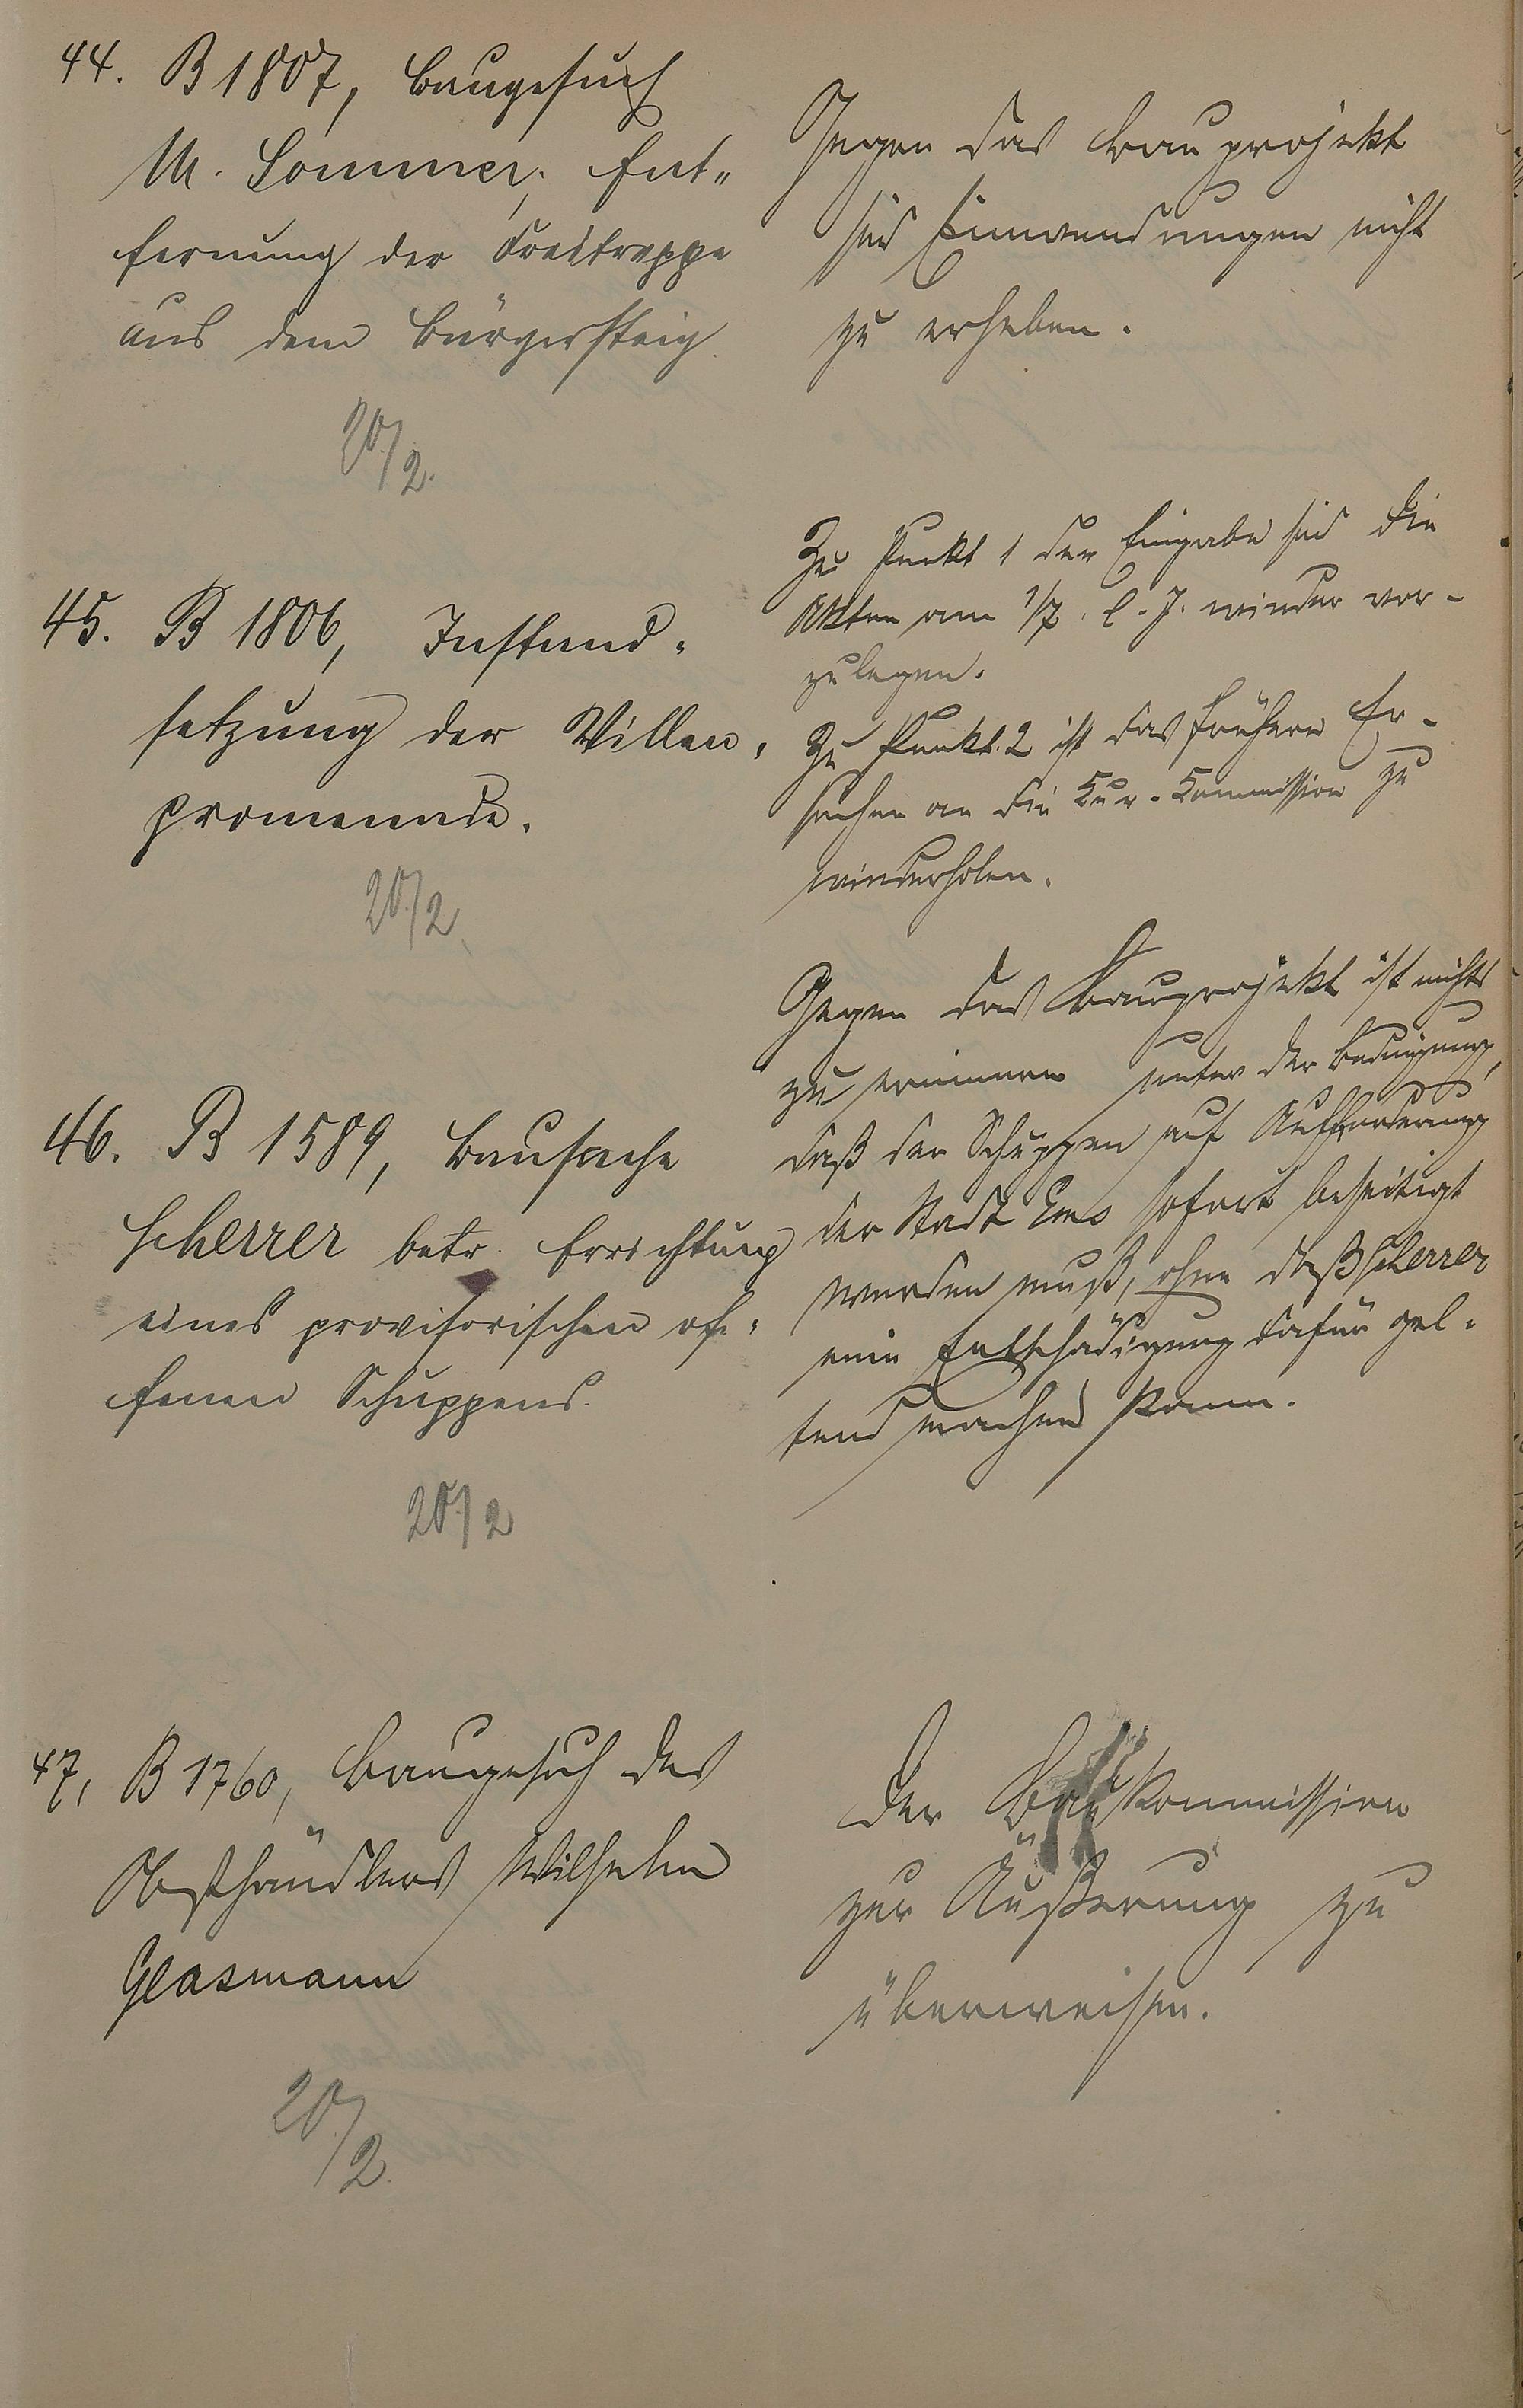 44. B 1807, Baugesuch
M. Sommer, Ent„
fernung der Freitreppe
aus dem Bürgersteig.
20/2.
Gegen das Bauprojekt
sind Einwendungen nicht
zu erheben.
45. B 1806, Instand-
setzung der Villen-
promenade.
20/2.
Zu Punkt 1 der Eingabe sind die
Akten am 1/7. l. J. wieder vor-
zulegen.
Zu Punkt 2 ist das frühere Er-
suchen an die Kur-Kommission zu
wiederholen.
46. B 1589, Bausache
Scherrer betr. Errichtung
eines provisorischen of-
fenen Schuppens.
20/2
Gegen das Bauprojekt ist nichts
zu erinnern unter der Bedingung,
daß der Schuppen auf Aufforderung
der Stadt Ems sofort beseitigt
werden muß, ohne daß Scherrer
eine Entschädigung dafür gel-
tend machen kann.
47, B 1760, Baugesuch des
Obsthändlers Wilhelm
Glasmann
20/2.
Der Baukommission
zur Äußerung zu
überweisen.